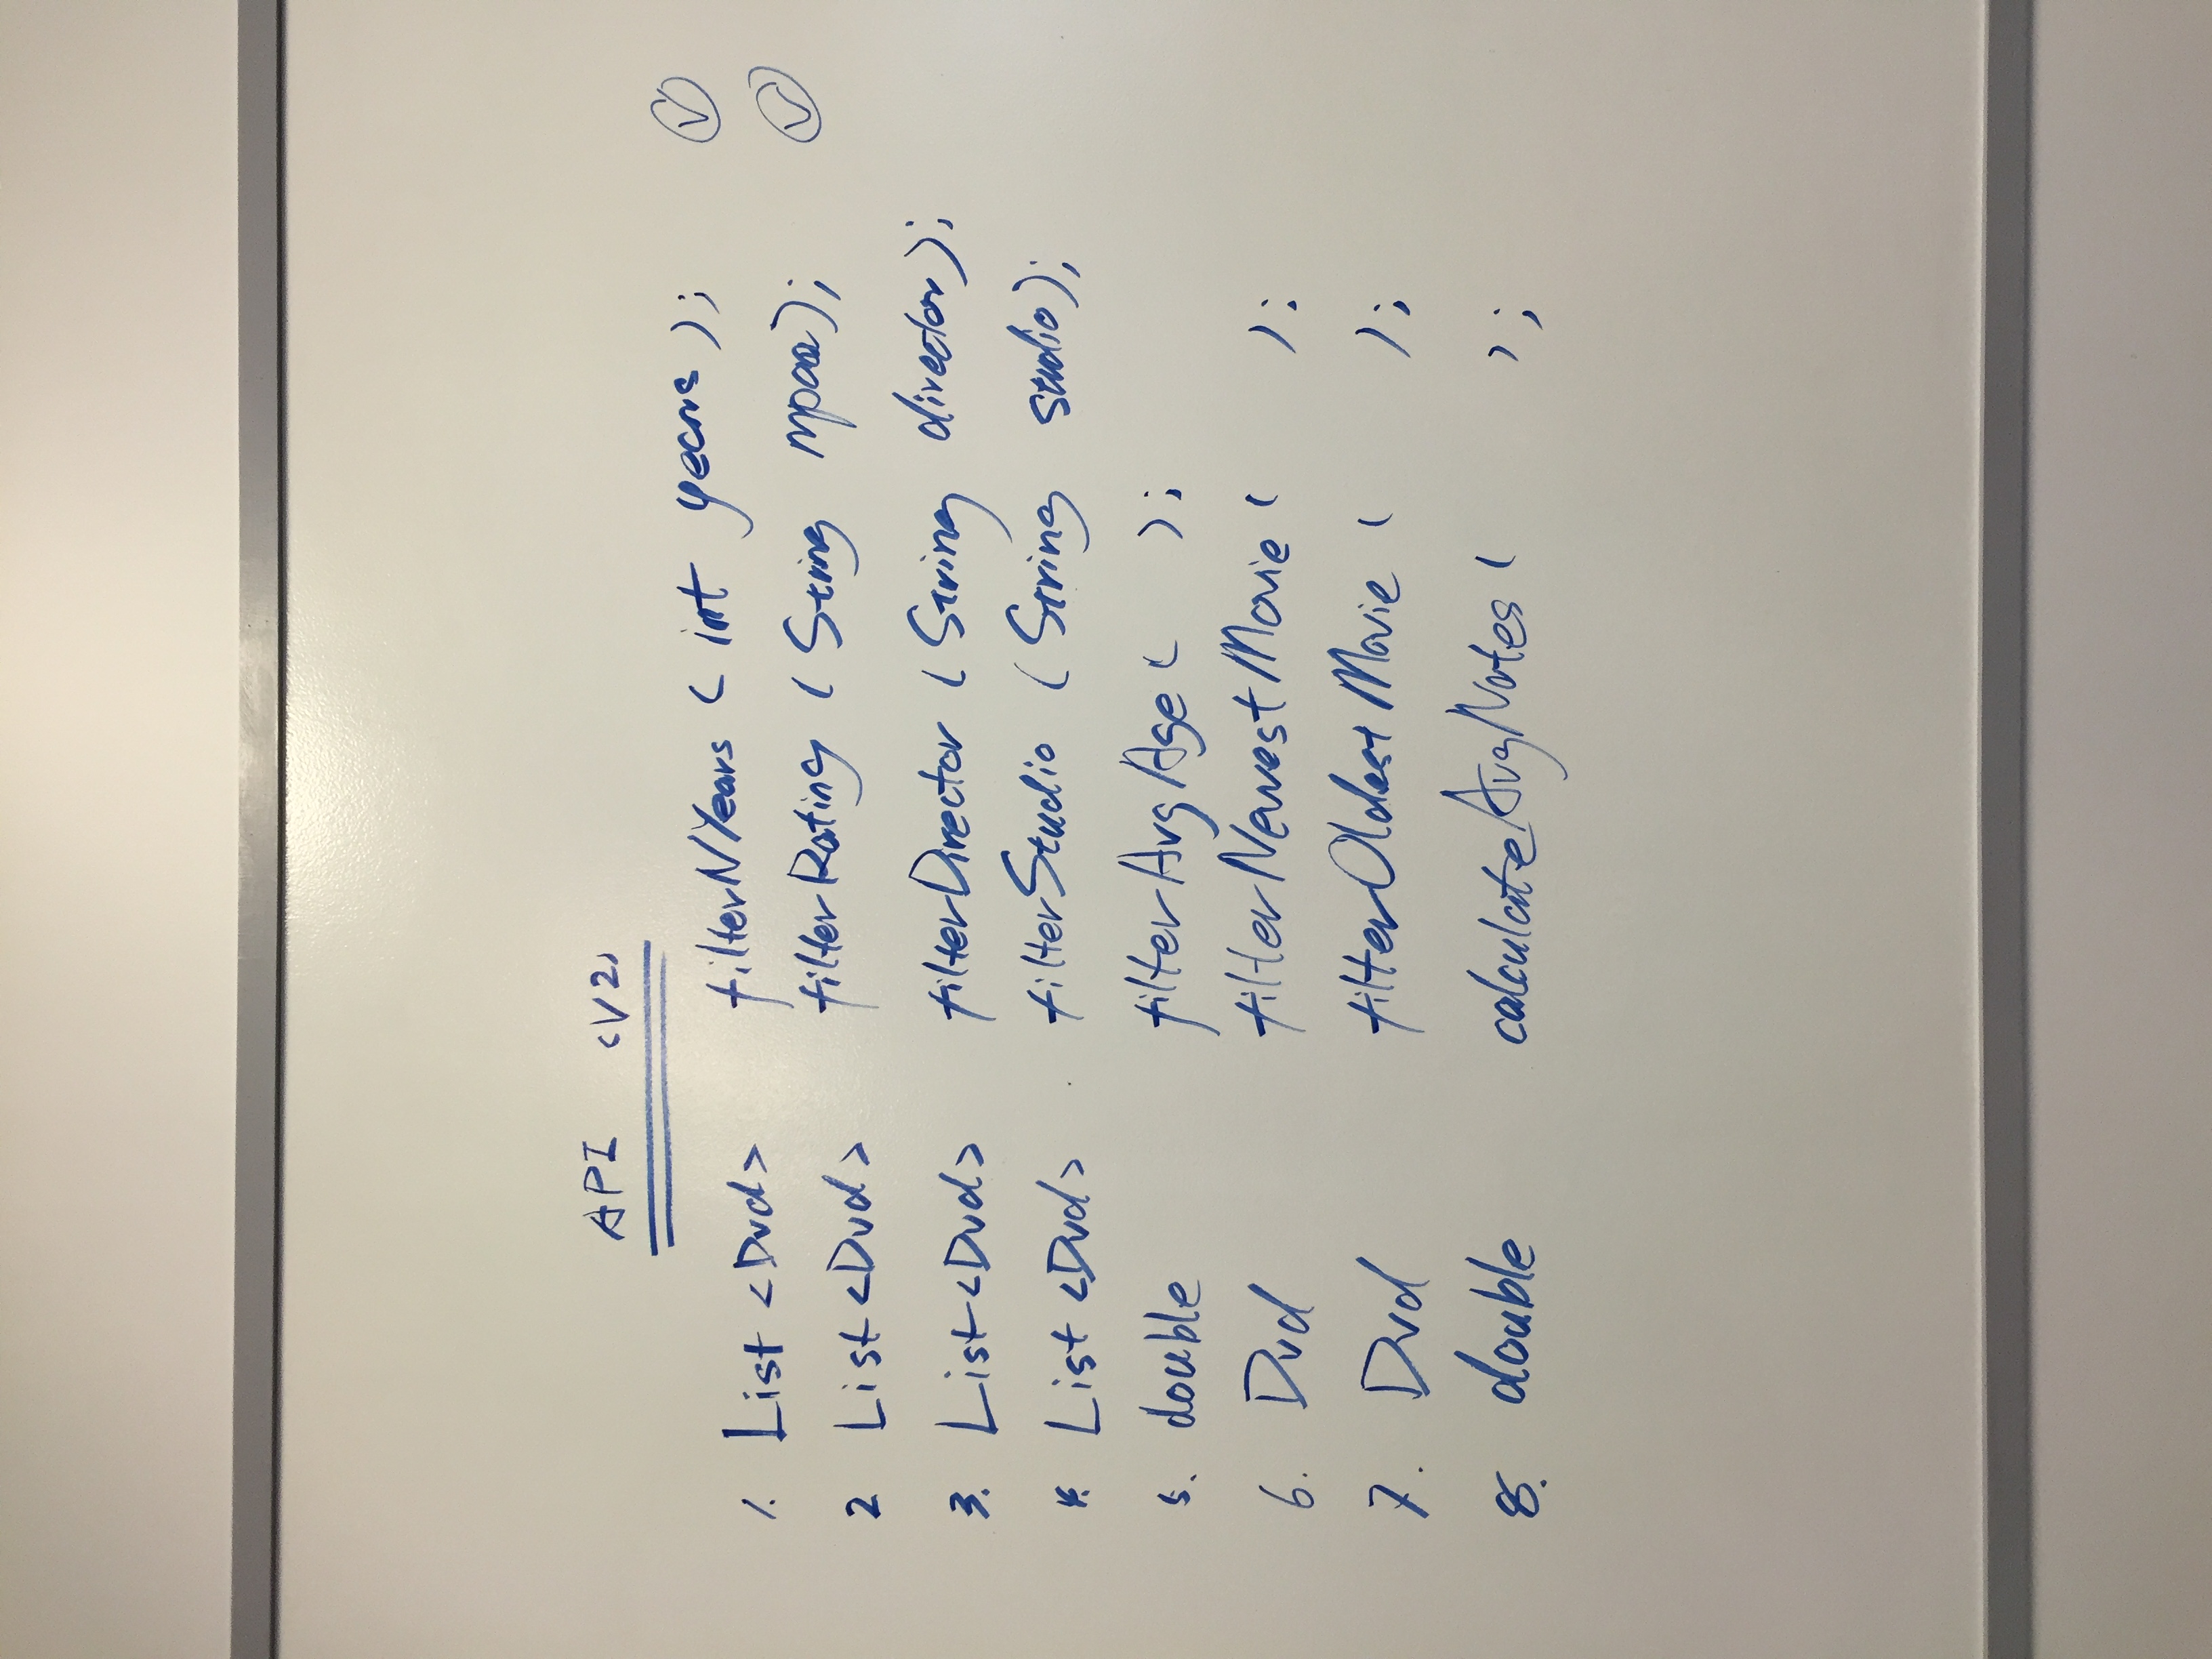 API (V2)
1. List <Dvd> filterNYears ( int years );
2 List <Dvd> filterRating ( String mpaa);
3. List <Dvd> filterDirector ( String director);
4. List <Dvd> filterStudio ( String studio);
5. double filterAvgAge ( );
6. Dvd filterNewestMovie ( );
7. Dvd filterOldestMovie ( );
8. double calculateAvgNotes ( );